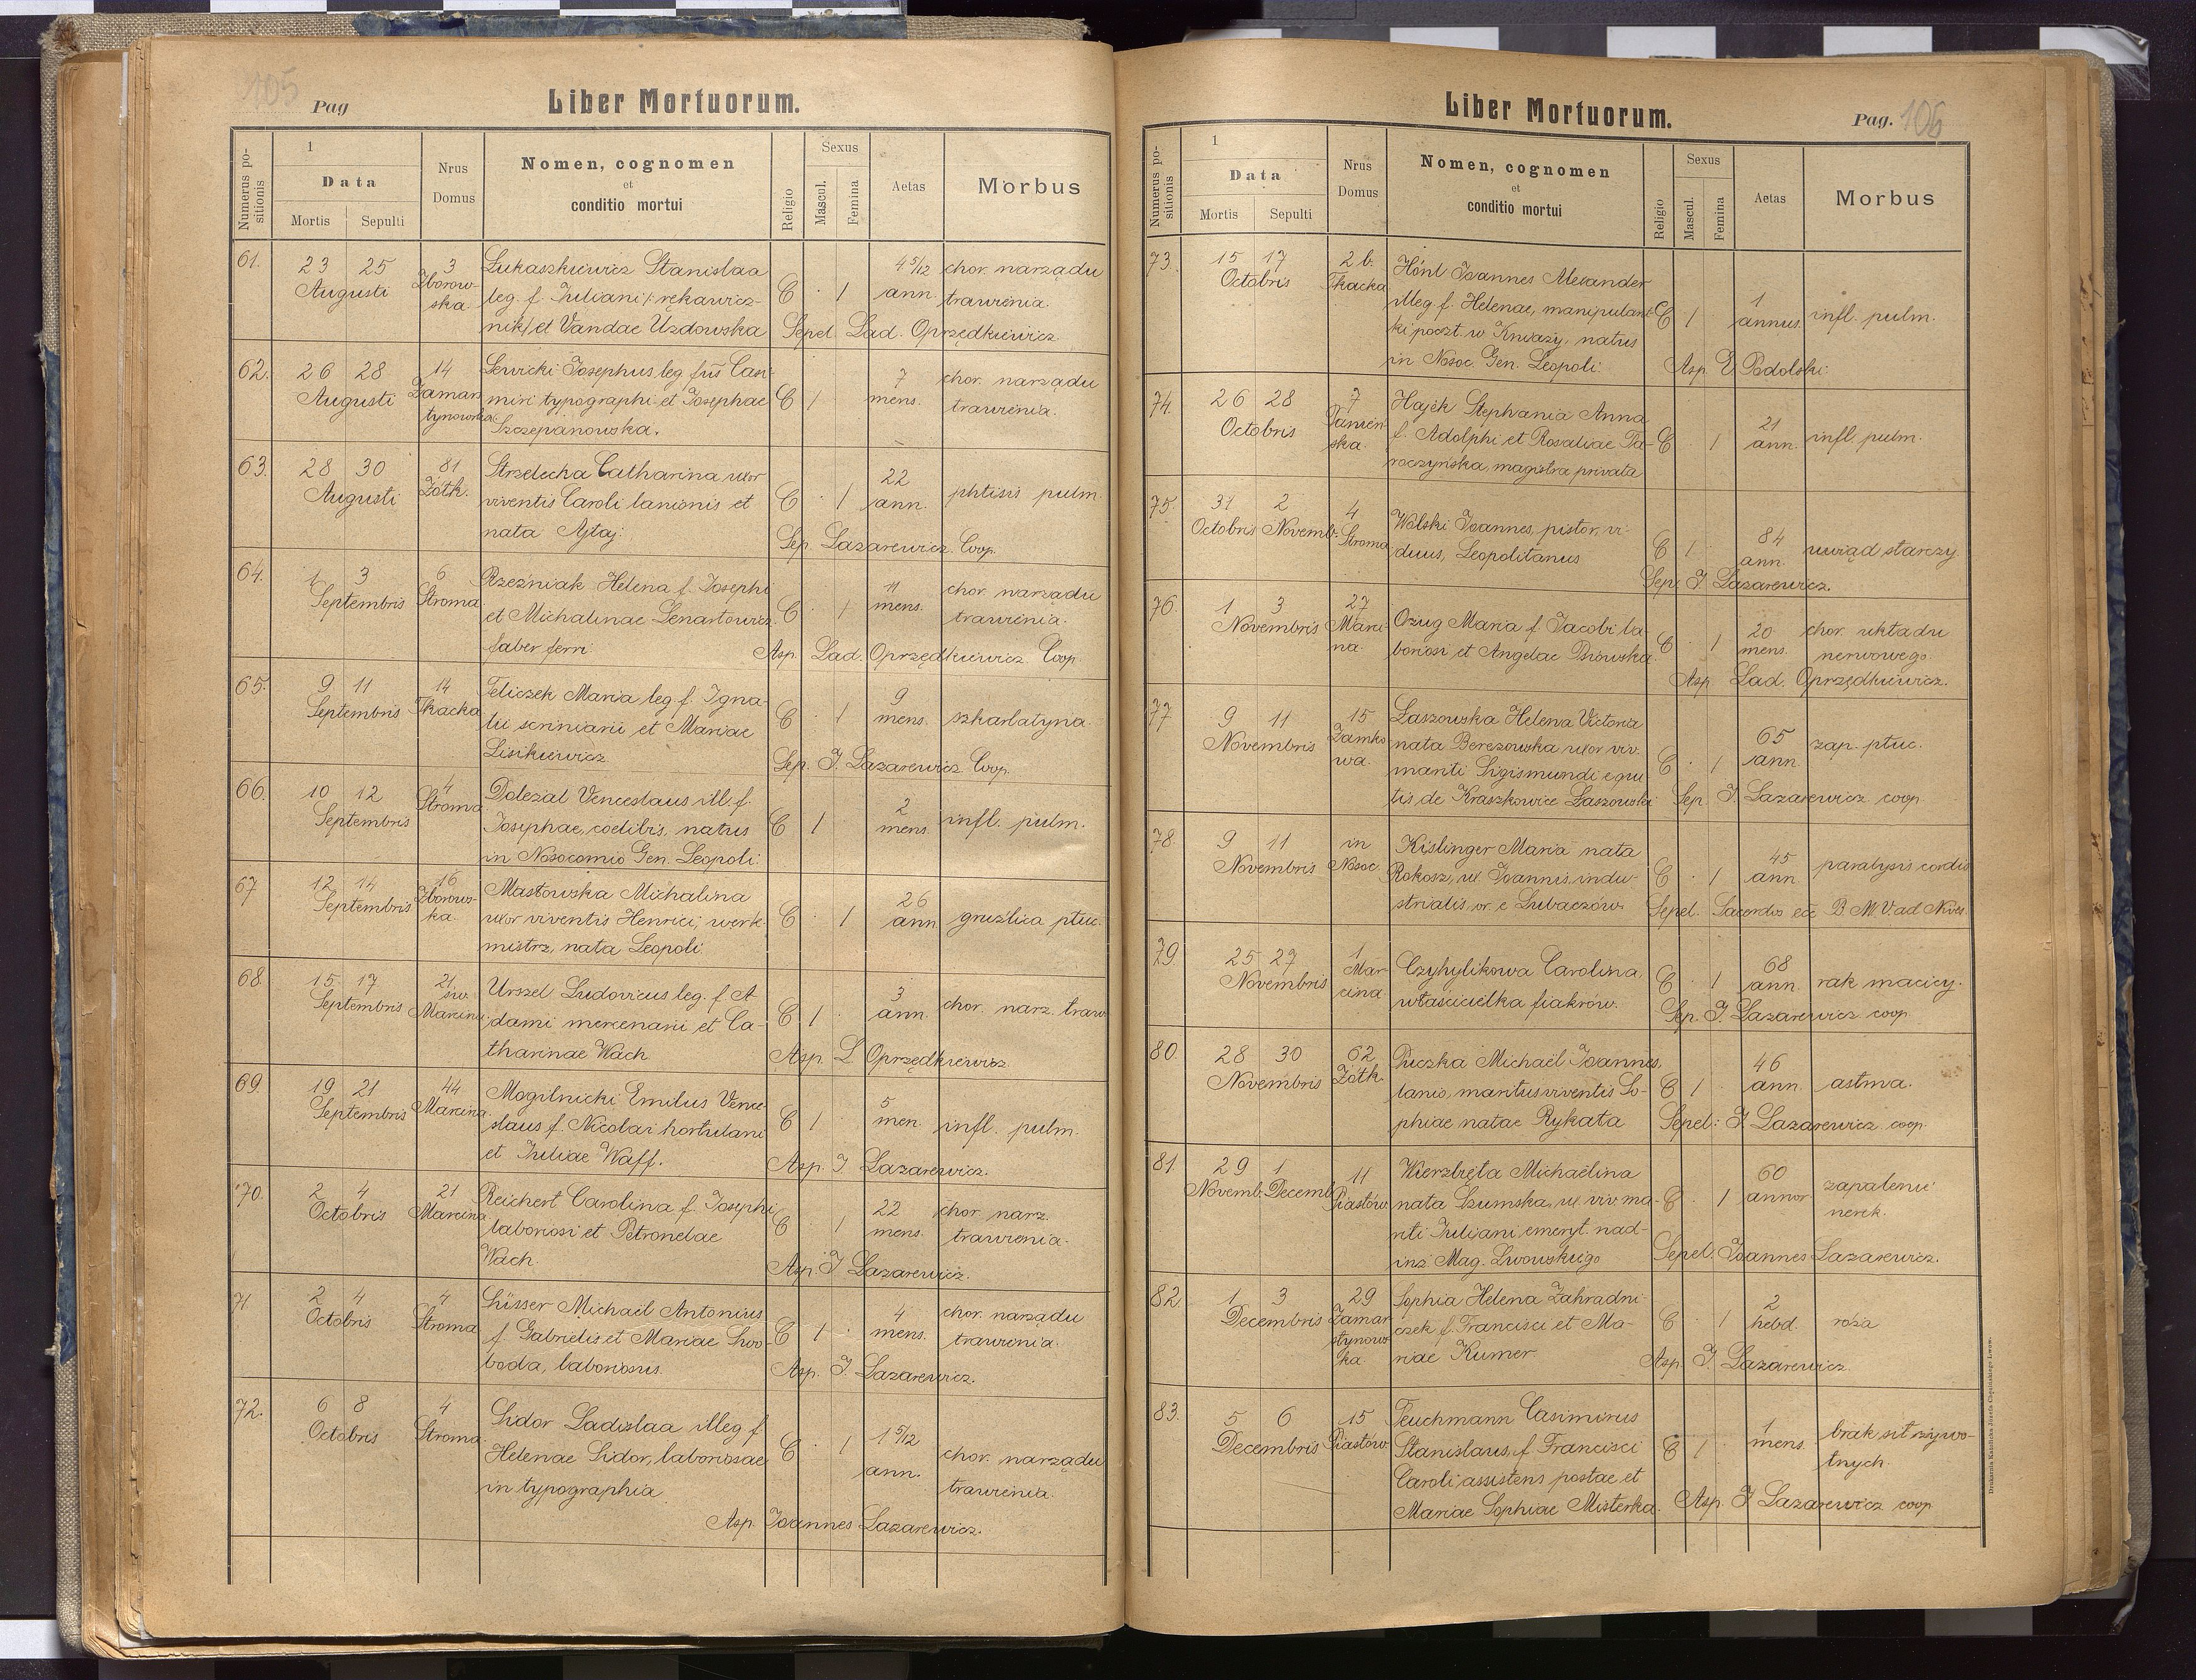 105
Pag
Liber Mortuorum.
Numerus positionis
1
Data
Mortis
Sepulti
Nrus Domus
Nomen, cognomen
et
conditio mortui
Religio
Sexus
Mascul.
Femina
Aetas
Morbus
61. 23 25 3 Łukaszkiewicz Stanislaa 4 5/12 chor. narządu
Augusti Zborow- leg. f. Juliani /: rękawicz- C · 1 ann. trawienia.
ska. nik/ et Vandae Uzdowska Sepel. Lad. Oprzędkiewicz
62. 26 28 14 Lewicki Josephus leg. fus Casi- 7 chor. narządu
Augusti Zamars miri typographi et Josephae C 1 mens. trawienia.
tynowska Szczepanowska.
63. 28 30 81 Strzelecha Catharina uxor 22
Augusti Żółk. viventis Caroli lanionis et C · 1 ann. phtisis pulm.
nata Ajtaj: Sep. Lazarewicz. Coop.
64. 1 3 6 Rzeźniak Helena f. Josephi 11 chor. narządu
Septembris Stroma et Michalinae Lenartowicz. C · 1 mens. trawienia.
faber ferri Asp. Lad. Oprzędkiewicz Coop.
65. 9 11 14 Feliczek Maria leg. f. Igna- 9
Septembris Tkacka tii scriniarii et Mariae C · 1 mens. szkarlatyna.
Lisikiewicz Sep. J. Lazarewicz. Coop.
66. 10 12 4 Doležal Venceslaus ill. f. 2
Septembris Stroma Josephae, coelibis, natus C 1 mens. infl. pulm.
in Nosocomio Gen. Leopoli:
67 12 14 16 Masłowska Michalina 26
Septembris Zborows- uxor viventis Henrici, werk- C · 1 ann gruźlica płuc.
ka. mistrz, nata Leopoli.
68. 15 17 21 Urszel Ludovicus leg. f. A- 3 chor. narz. traw
Septembris św. Marcina dami mercenarii et Ca- C 1 ann.
tharinae Wach Asp. L Oprzędkiewicz
69. 19 21 44 Mogilnicki Emilus Vence- 5
Septembris Marcina. slaus f. Nicolai hortulani C 1 men. infl. pulm.
et Juliae Waff. Asp. J. Lazarewicz.
70. 2 4 21 Reichert Carolina f. Josephi 22 chor. narz.
Octobris Marcina laboriosi et Petronelae C · 1 mens. trawienia.
Wach. Asp. J Lazarewicz.
71 2 4 4 Michaël Antonius 4 chor. narządu
Octobris Stroma f. Gabrielis et Mariae Swo- C 1 · mens. trawienia.
boda, laboriosus. Asp. J. Lazarewicz.
72. 6 8 4 Sidor Ladislaa illeg f. 1 5/12
Octobris Stroma. Helenae Sidor, laboriosae C · 1 ann. chor. narządu
in typographia trawienia.
Asp. Joannes Lazarewicz.
Liber Mortuorum.
Pag. 106
Numerus positionis
1
Data
Mortis
Sepulti
Nrus Domus
Nomen, cognomen
et
conditio mortui
Religio
Sexus
Mascul.
Femina
Aetas
Morbus
73. 15 17 2 b. Hönl Joannes Alexander
Octobris Tkacka illeg f. Helenae, manipulant- C 1 1 annus. infl. pulm.
ki poczt. w Kniaży, natus
in Nosoc. Gen. Leopoli: Asp. E Podolski:
74. 26 28 7 Hajek Stephania Anna 21
Octobris Panień- f. Adolphi et Rosaliae Ta- C · 1 ann. infl. pulm.
ska. roczyńska, magistra privata
75. 31 2 4 Wolski Joannes, pistor, vi- 84
Octobris Novemb. Stroma duus, Leopolitanus C 1 ann. uwiąd starczy.
Sep. J. Lazarewicz.
76. 1 3 27 Ożug Maria f. Jacobi la- 20 chor. układu
Novembris Marci- boriosi et Angelae C · 1 mens. nerwowego.
na. Asp. Lad. Oprzędkiewicz.
77 9 11 15 Łaszowska Helena Victoria 65
Novembris Zamko nata Berezowska uxor viv. ann. zap. płuc.
wa. mariti Sigismundi equi C · 1
tis, de Kraszkowice Łaszowski Sep. J. Lazarewicz coop
78. 9 11 in Kislinger Maria nata 45
Novembris Nosoc. Rokosz, ux. Joannis, indu- C · 1 ann. paralysis cordis
strialis or. e Lubaczów Sepel. Sacerdos ecc B. M. V. ad Nives.
79. 25 27 1 Czyhylikowa Carolina, 68
Novembris Mar- właścicielka fiakrów. C · 1 ann. rak macicy.
cina Sep. J. Lazarewicz coop
80. 28 30 62 Puczka Michaël Joannes, 46
Novembris Żółk. lanio, maritus viventis So- C 1 ann. astma.
phiae natae Rykała Sepel: J Lazarewicz. coop.
81. 29 1 11 Wierzbęta Michaëlina 60 zapalenie
Novemb. Decemb. Piastów. nata Szumska, ux. viv. ma- C · 1 annor nerek.
riti Juliani emeryt. nad-
inż. Mag. Lwowskiego Sepel. Joannes Lazarewicz.
82. 1 3 29 Sophia Helena Zahradni- 2
Decembris Zamar czek f. Francisci et Ma- C · 1 hebd. róża
stynows riae Kumer
ka Asp. J. Lazarewicz
83. 5 6 15 Teuchmann Casimirus 1 brak sił żywo-
Decembris Piastów. Stanislaus, f. Francisci C 1 mens. tnych.
Caroli assistens postae et
Mariae Sophiae Misterka. Asp. J Lazarewicz coop